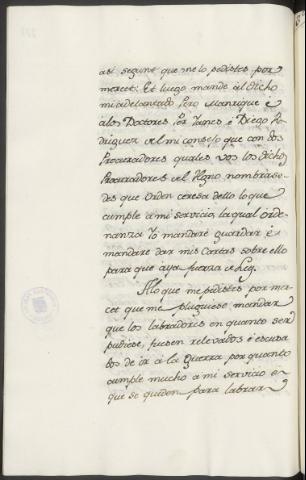 asi segunt que me lo pedistes por
merced: Et luego mandé al dicho
mi adelantado Pero Manrique é
a los Doctores Per Yañes é Diego Ro-
driguez del mi consejo que con dos
Procuradores quales vos los dicho
Procuradores del Regno nombrase-
des que orden cerca dello lo que
cumple a mi servicio, la qual orde-
nanza Yo mandaré guardar é
mandaré dar mis Cartas sobre ello
para que aya fuerza de Ley.
Alo que me pedistes por mer-
cet que me pluguiese mandar
que los labradores en quanto ser
pudiese, fuesen relevados é escusa-
dos de ir á la Guerra por quanto
cumple mucho a mi servicio en
que se queden para labrar